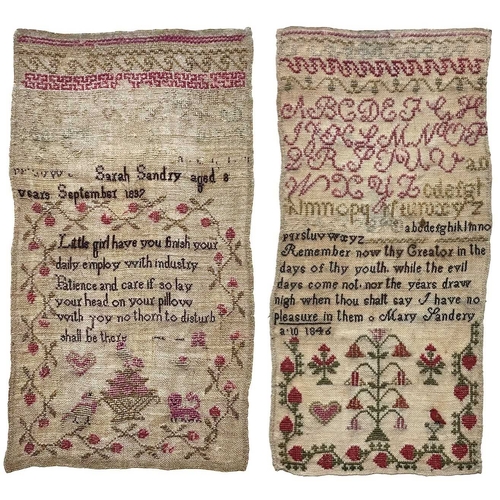 Sarah Sandry aged 8
years September 1837
Little girl have you finish your
daily employ with industry
Patience and care if so lay
your head on your pillow
with yoy no thorn to disturb
shall be there
ABCDEFGH
IJKLMNOP
QRSTUVW ab
XYZ cdefgh
klmnopqrstuvwxyz
abcdefghiklmno
pqrsluvwxyz
Remember now thy Creator in the
days of thy youth while the evil
days come not nor the years draw
nigh when thou shalt say I have no
pleasure in them o Mary Sandery
a 10 1846